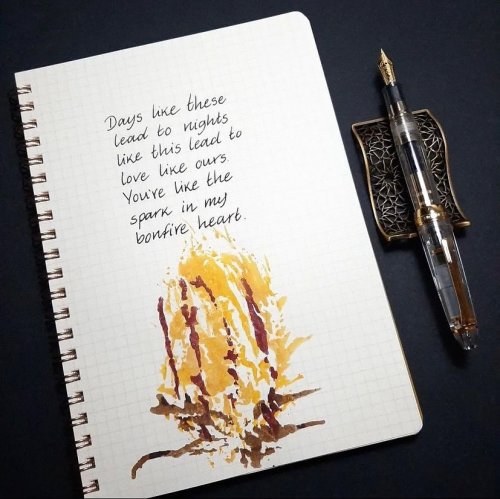 Days like these
lead to nights
like this lead to
love like ours.
You're like the
spark in my
bonfire heart.